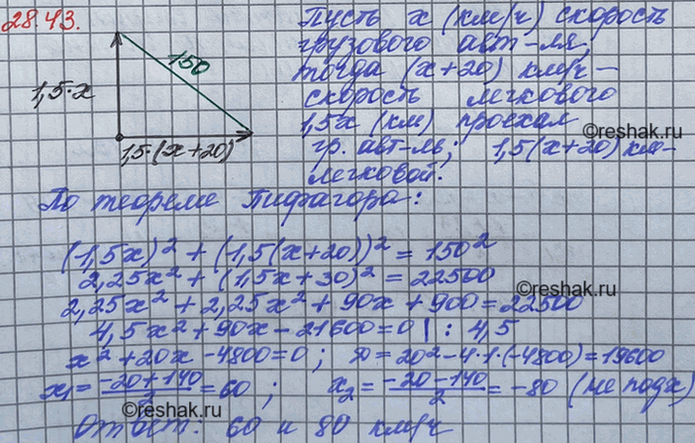 28.43.
Пусть x (км/ч) скорость
грузового авт-ля,
150
тогда (x+20) км/ч –
1,5·x
скорость легкового
1,5x (км) проехал
©reshak.ru
1,5·(x+20)
гр. авт-ль; 1,5(x+20) км-
легковой.
По теореме Пифагора:
(1,5x)² + (1,5(x+20))² = 150²
2,25x² + (1,5x+30)² = 22500
©reshak.ru
2,25x² + 2,25x² + 90x + 900 = 22500
4,5x² + 90x - 21600 = 0 | : 4,5
x² + 20x - 4800 = 0 ; D = 20² - 4·1·(-4800) = 19600
x₁ = (-20+140)/2 = 60 ; x₂ = (-20-140)/2 = -80 (не подх)
©reshak.ru
Ответ: 60 и 80 км/ч